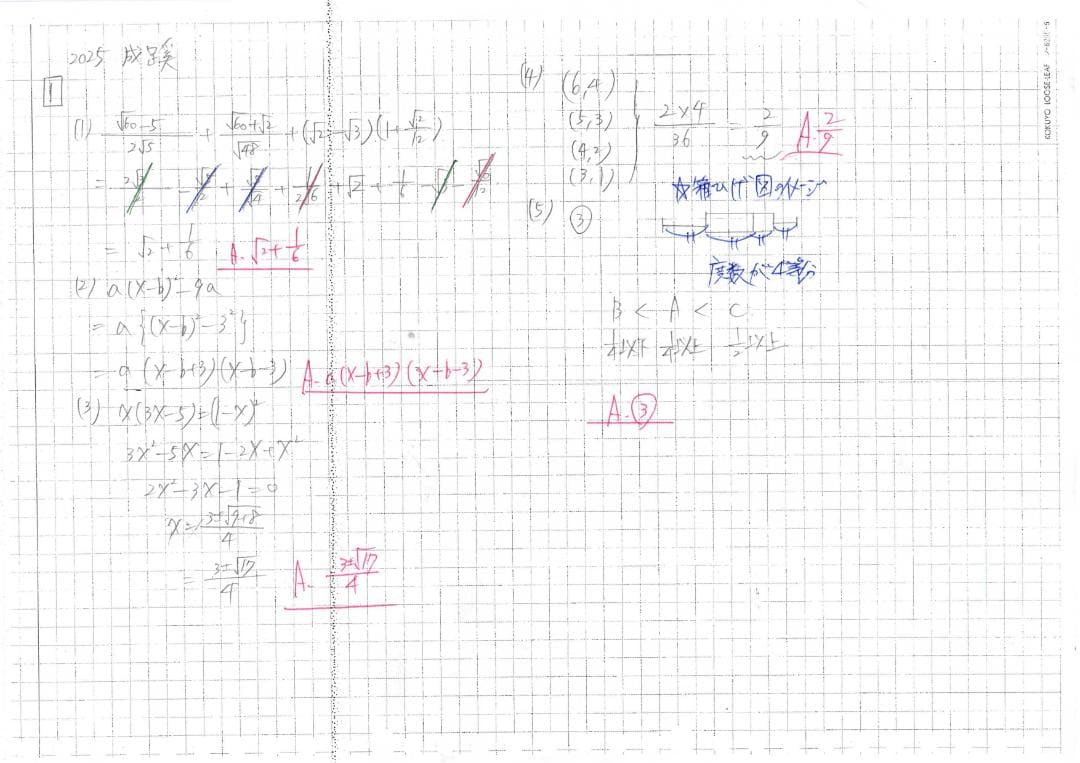 2025 成蹊
1
(1) (√60-5)/(2√5) + (√60+√2)/√48 + (√2-√3)(1+√2/12)
= √2 + 1/6 A. √2+1/6
(2) a(x-b)²-9a
= a{(x-b)²-3²}
= a(x-b+3)(x-b-3) A. a(x-b+3)(x-b-3)
(3) x(3x-5)=(1-x)²
3x²-5x=1-2x+x²
2x²-3x-1=0
x=(3±√9+8)/4
= (3±√17)/4 A. (3±√17)/4
(4) (6,4)
(5,3)
(4,2)
(3,1)
(2×4)/36 = 2/9 A. 2/9
☆箱ひげ図のイメージ
(5) ③
度数が4等分
B < A < C
1/4以下 1/4以上 1/2以上
A. ③
KOKUYO LOOSE-LEAF